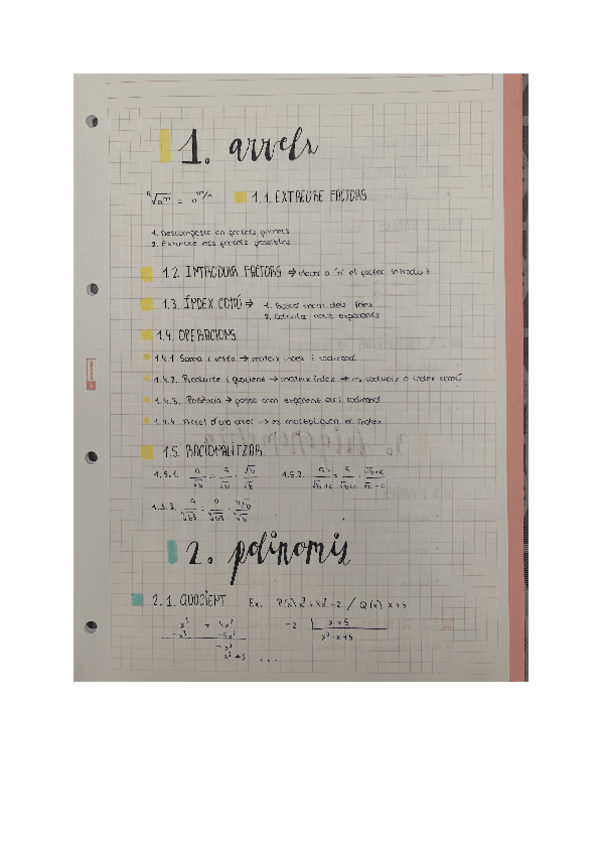 1. arrels
ⁿ√aᵐ = a^m/n 1.1. EXTREURE FACTORS
1. Descompasta en factors primers
2. Extreure els factors possibles
1.2. INTRODUIR FACTORS → elevar a "n" el factor introduït
1.3. ÍNDEX COMÚ → 1. Buscar mcm dels índex
2. calcular nous exponents
1.4. OPERACIONS
1.4.1 Suma i resta → mateix índex i radicand
1.4.2. Producte i quocient → mateix índex → es redueix a índex comú
1.4.3. Potència → passa com exponent del radicand
1.4.4. Arrel d'una arrel → es multipliquen els índex
1.5. RACIONALITZAR
1.5.1. a/√b = a/√b · √b/√b 1.5.2.
1.5.3.
2. polinomis
2.1. QUOCIENT Ex. P(x) x³+4x²-2 / Q(x) x+5
x³ + 4x² -2 x+5
-x³ -5x² x²-x+5
-x²
x² +5 ...